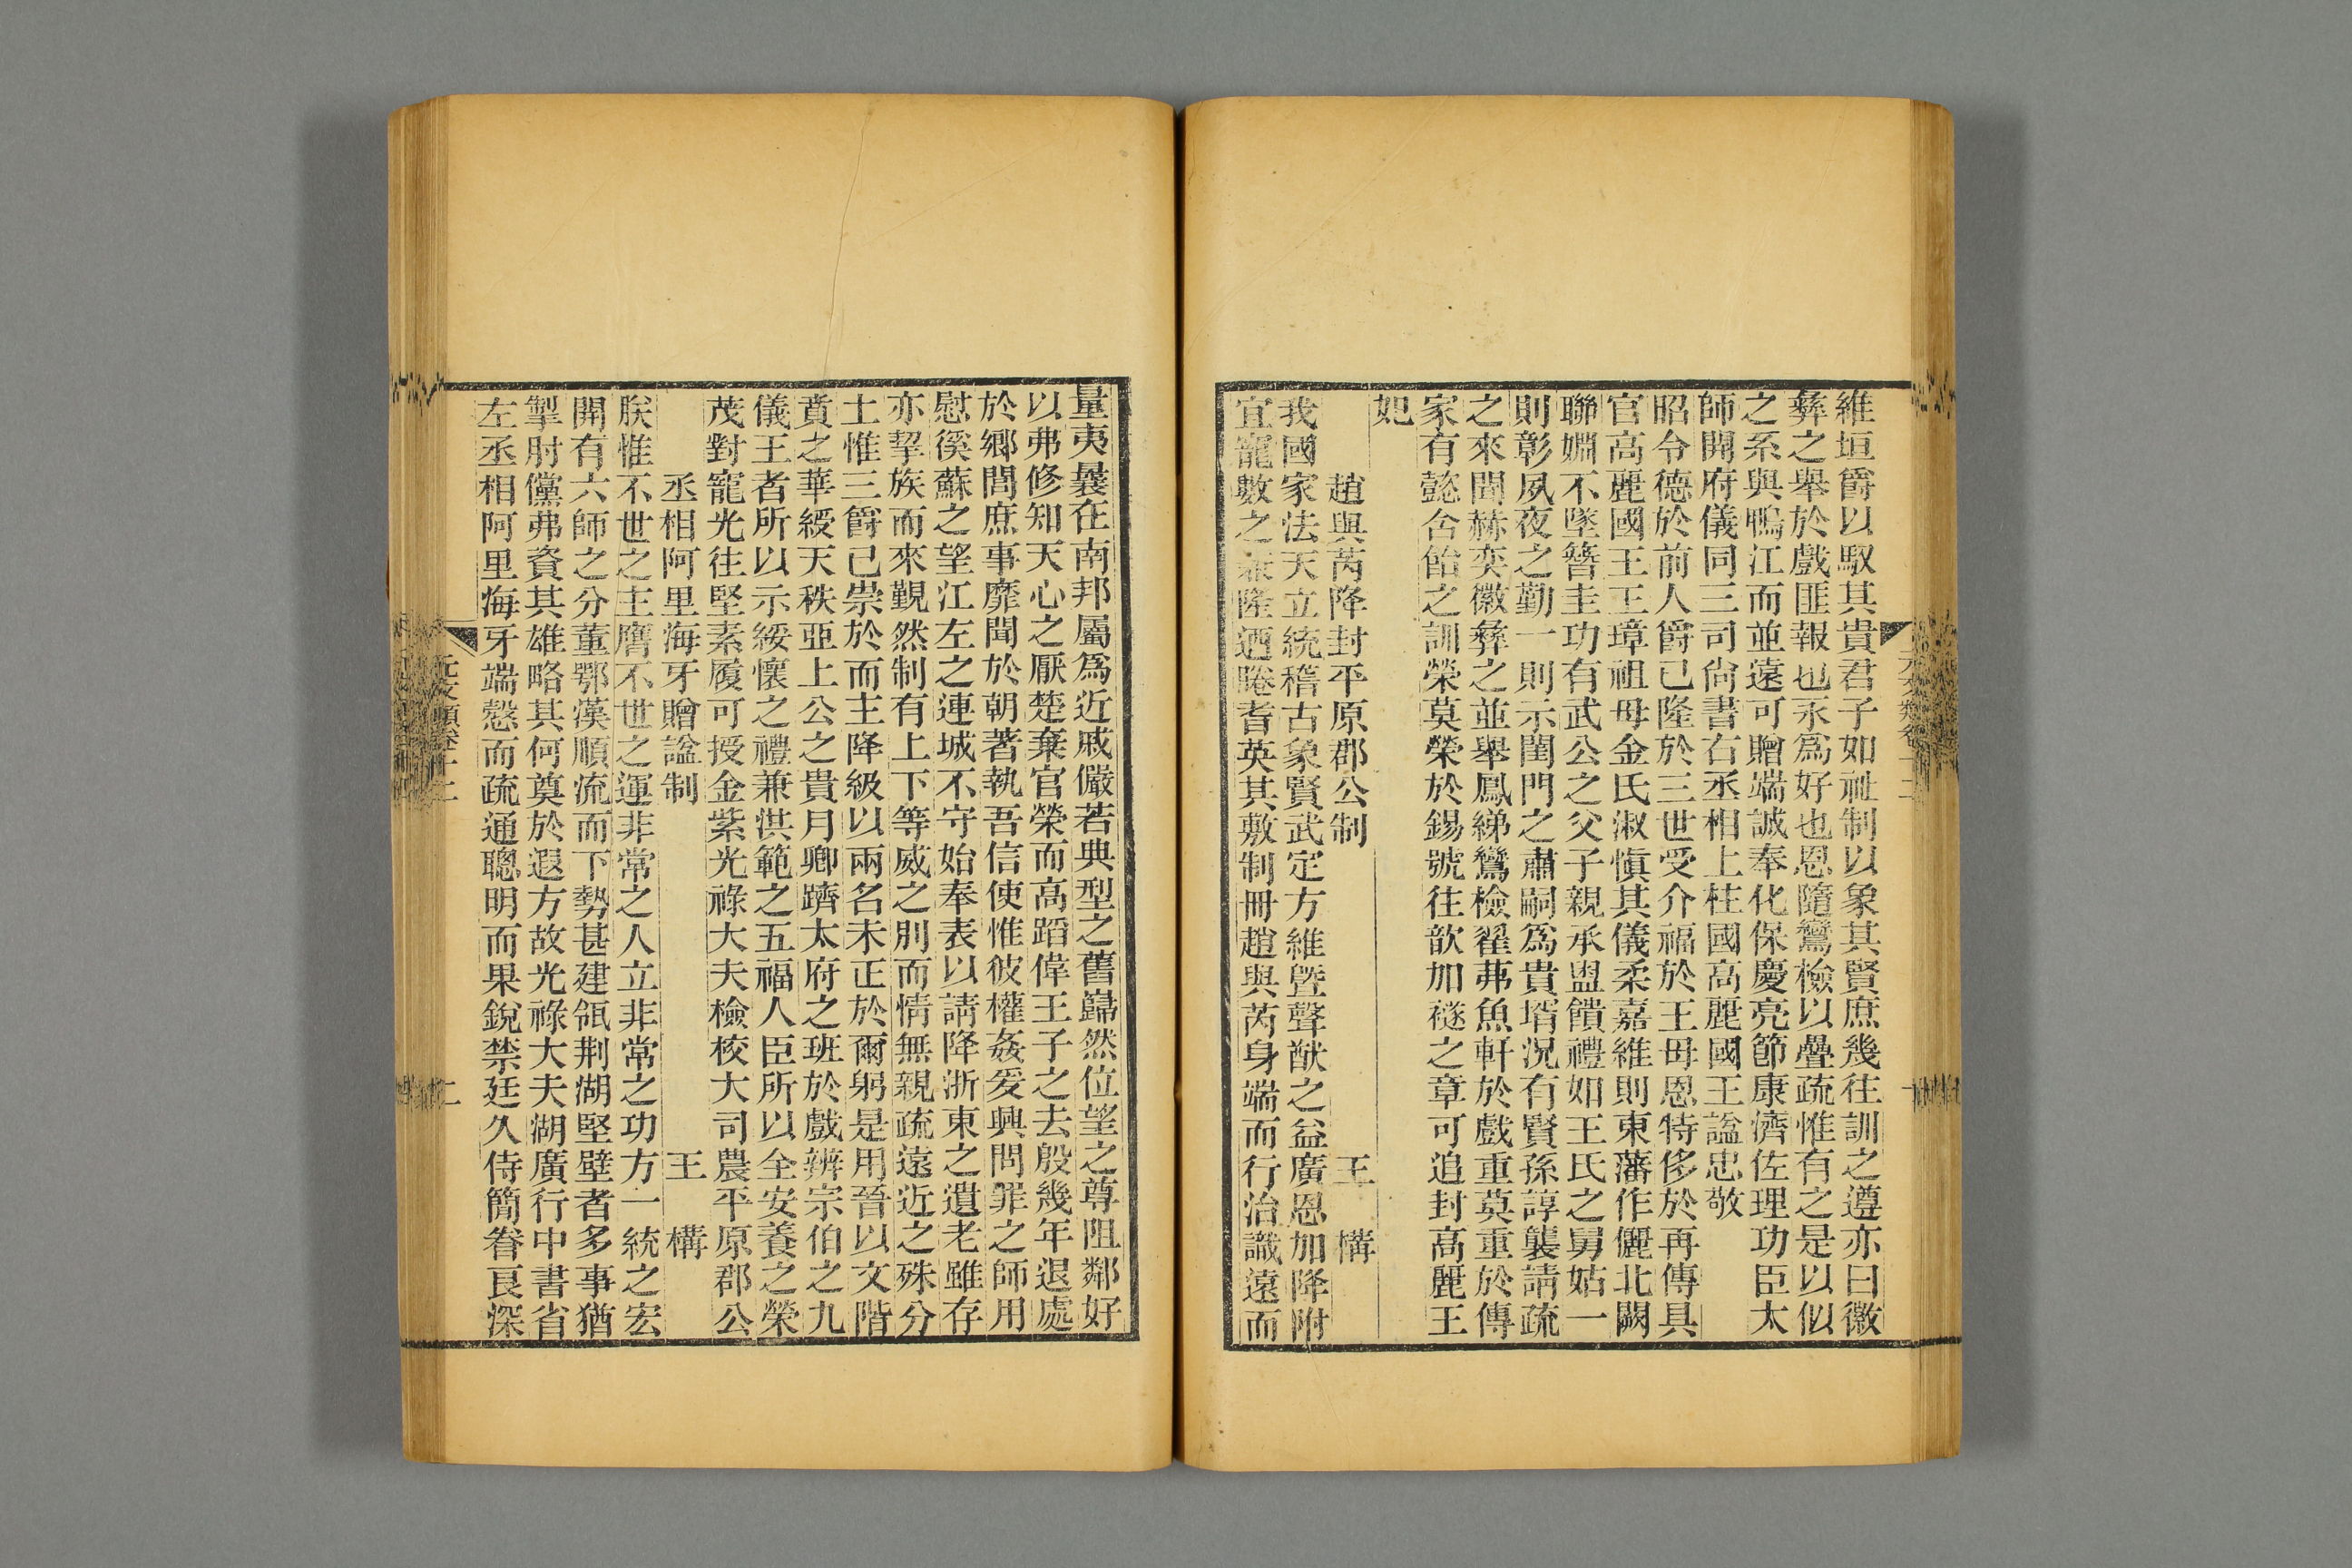 維垣爵以馭其貴君子如祉制以象其賢庶幾往訓之遵亦曰徽
彝之舉於戲匪報也永爲好也恩隨鸞檢以疊疏惟有之是以似
之系與鴨江而並遠可贈端誠奉化保慶亮節康濟佐理功臣太
師開府儀同三司尙書右丞相上柱國高麗國王諡忠敬
昭令德於前人爵已隆於三世受介福於王母恩特侈於再傳具
官高麗國王王璋祖母金氏淑愼其儀柔嘉維則東藩作儷北闕
聯婣不墜簪圭功有武公之父子親承盥饋禮如王氏之舅姑一
則彰夙夜之勤一則示閨門之肅嗣爲貴壻況有賢孫諄襲請疏
之來聞赫奕徽彝之並舉鳳綈鸞檢翟茀魚軒於戲重莫重於傳
家有懿含飴之訓榮莫榮於錫號往歆加襚之章可追封高麗王
妃
趙與芮降封平原郡公制　王構
我國家法天立統稽古象賢武定方維曁聲猷之益廣恩加降附
宜寵數之兼隆迺睠耆英其敷制冊趙與芮身端而行治識遠而
量夷曩在南邦屬爲近戚儼若典型之舊巋然位望之尊阻鄰好
以弗修知天心之厭楚棄官榮而高蹈偉王子之去殷幾年退處
於鄉閭庶事靡聞於朝著執吾信使惟彼權姦爰興問罪之師用
慰徯蘇之望江左之連城不守始奉表以請降浙東之遺老雖存
亦挈族而來覲然制有上下等威之別而情無親疏遠近之殊分
土惟三爵已崇於而主降級以兩名未正於爾躬是用晉以文階
賁之華綬天秩亞上公之貴月卿躋太府之班於戲辨宗伯之九
儀王者所以示綏懷之禮兼洪範之五福人臣所以全安養之榮
茂對寵光往堅素履可授金紫光祿大夫檢校大司農平原郡公
丞相阿里海牙贈諡制　王構
朕惟不世之主膺不世之運非常之人立非常之功方一統之宏
開有六師之分董鄂漢順流而下勢甚建瓴荆湖堅壁者多事猶
掣肘儻弗資其雄略其何奠於遐方故光祿大夫湖廣行中書省
左丞相阿里海牙端愨而疏通聰明而果銳禁廷久侍簡眷良深
元文類卷十二
二